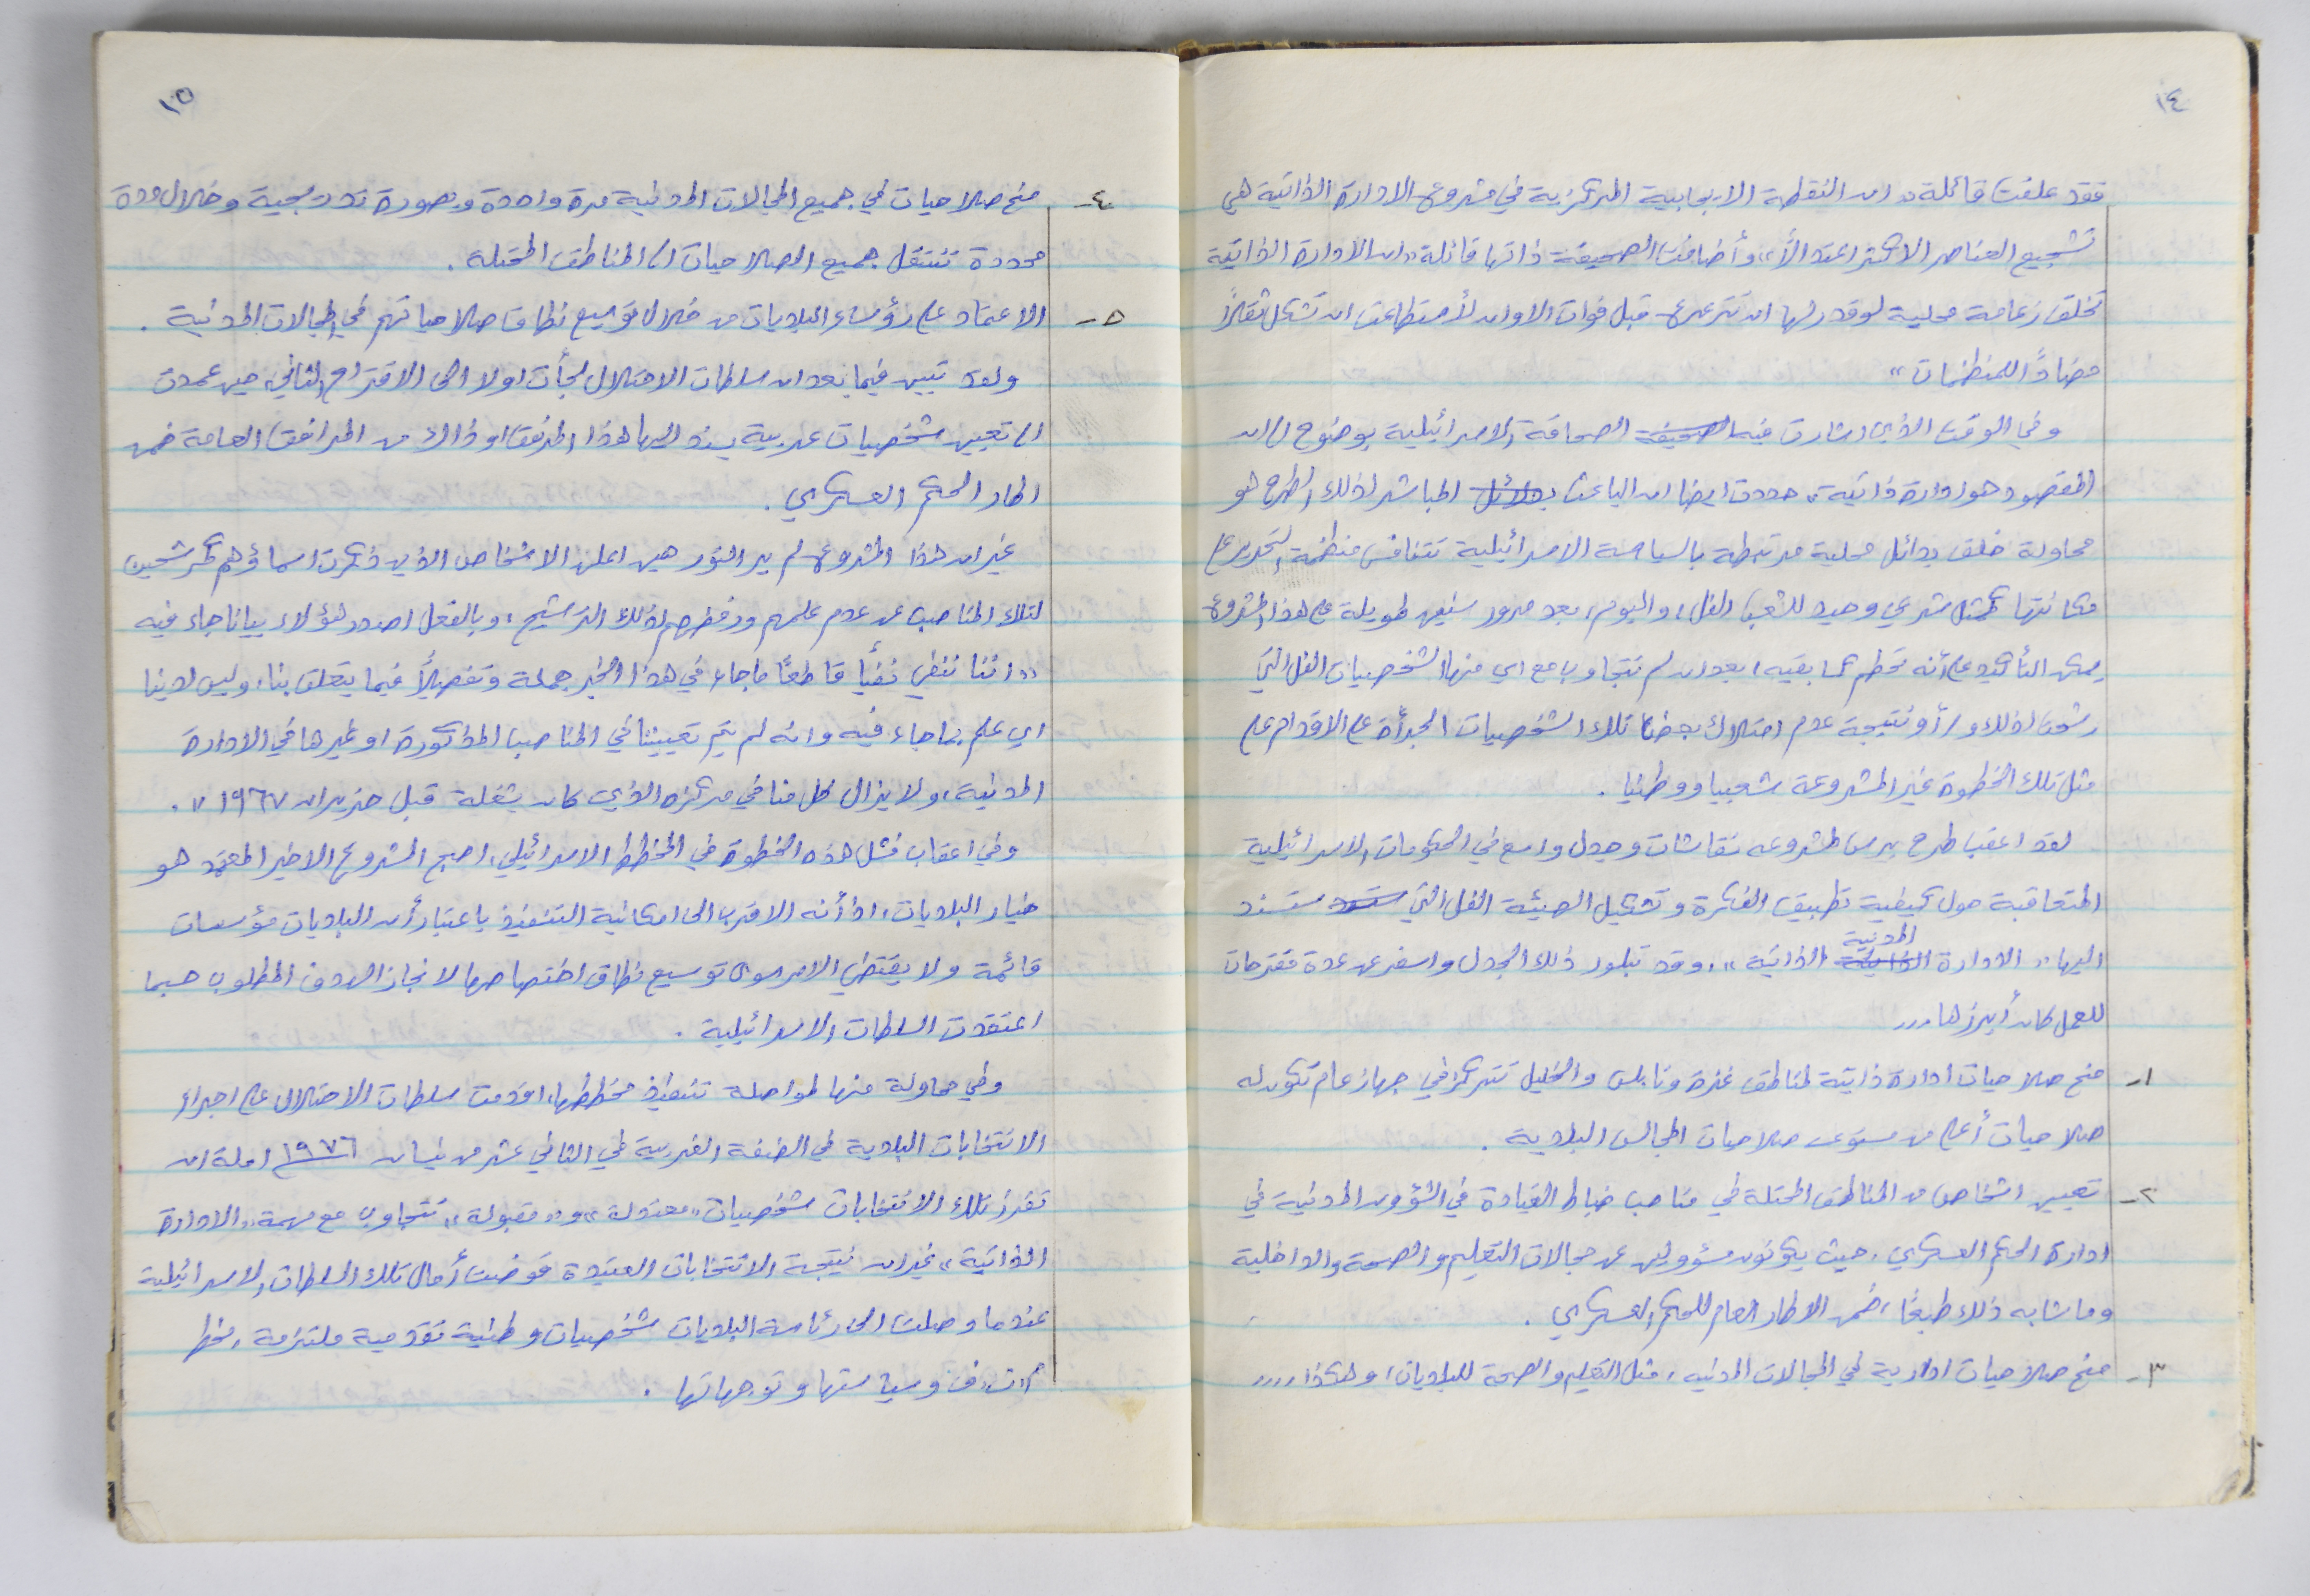 ١٤
فقد علقت قائلة " ان النقطة الايجابية المركزية في مشروع الادارة الذاتية هي
تشجيع العناصر الاكثر اعتدالاً " وأضافت الصحيفة ذاتها قائلة " ان الادارة الذاتية
تخلق زعامة محلية لو قدر لها ان تترعرع قبل فوات الاوان لأستطاعت ان تشكل ثقلاً
مضاداً للمنظمات "
وفي الوقت الذي اشارت فيه الصحيفة الصحافة الاسرائيلية بوضوح الى ان
المقصود هو ادارة ذاتية، حددت ايضا ان الباعث بدلائل المباشر لذلك الطرح هو
محاولة خلق بدائل محلية مرتبطة بالسياسة الاسرائيلية تتنافس منظمة التحرير على
مكانتها كممثل شرعي وحيد للشعب الفل، واليوم، بعد مرور سنين طويلة على هذا المشروع
يمكن التأكيد على أنه تحطم كسابقيه، بعد ان لم تتجاوب مع اي منها الشخصيات الفل التي
رشحت لذلك و/أو نتيجة عدم امتلاك بعض تلك الشخصيات الجرأة على الاقدام على
مثل تلك الخطوة غير المشروعة شعبيا ووطنيا .
لقد اعقب طرح بيرس لمشروعه نقاشات وجدل واسع في الحكومات الاسرائيلية
المتعاقبة حول كيفية تطبيق الفكرة وتشكيل الهيئة الفل التي ستسند
المدنية
اليها " الادارة الذاتية "، وقد تبلور ذلك الجدل واسفر عن عدة مقترحات
للعمل كان أبرزها ...
١- منح صلاحيات ادارة ذاتية لمناطق غزة ونابلس والخليل تتركز في جهاز عام تكون له
صلاحيات أعلى من مستوى صلاحيات المجالس البلدية .
٢- تعيين اشخاص من المناطق المحتلة في مناصب ضباط القيادة في الشؤون المدنية في
ادارة الحكم العسكري، حيث يكونون مسؤولين عن مجالات التعليم والصحة والداخلية
وما شابه ذلك طبعًا، ضمن الاطار العام للحكم العسكري .
٣- منح صلاحيات ادارية في المجالات المدنيه، مثل التعليم والصحة للبلديات، وهكذا ....
١٥
٤- منح صلاحيات في جميع المجالات المدنية مرة واحدة وبصورة تدريجية وخلال مدة
محددة تنتقل جميع الصلاحيات الى المناطق المحتلة .
٥- الاعتماد على رؤساء البلديات من خلال توسيع نطاق صلاحياتهم في المجالات المدنية .
ولقد تبين فيما بعد ان سلطات الاحتلال لجأت اولا الى الاقتراح الثاني، حين عمدت
الى تعيين شخصيات عربية يسند اليها هذا المرفق او ذاك من المرافق العامة ضمن
اطار الحكم العسكري .
غير ان هذا المشروع لم ير النور حين اعلن الاشخاص الذين ذكرت اسماؤهم كمرشحين
لتلك المناصب عن عدم علمهم ورفضهم لذلك الترشيح، وبالفعل اصدر هؤلاء بيانا جاء فيه
" اننا ننفي نفيًا قاطعًا ما جاء في هذا الخبر جملة وتفصيلاً فيما يتعلق بنا، وليس لدينا
اي علم بما جاء فيه وانه لم يتم تعييننا في المناصب المذكورة او غيرها في الادارة
المدنية، ولا يزال كل منا في مركزه الذي كان يشغله قبل حزيران ١٩٦٧ " .
وفي اعقاب فشل هذه الخطوة في المخطط الاسرائيلي، اصبح المشروع الاخير المعتمد هو
خيار البلديات، اذ أنه الاقرب الى امكانية التنفيذ باعتبار أن البلديات مؤسسات
قائمة ولا يقتضي الامر سوى توسيع نطاق اختصاصها لانجاز الهدف المطلوب حسبما
اعتقدت السلطات الاسرائيلية .
وفي محاولة منها لمواصلة تنفيذ مخططها، اقدمت سلطات الاحتلال على اجراء
الانتخابات البلدية في الضفة الغربية في الثاني عشر من نيسان ١٩٧٦ املة ان
تفرز تلك الانتخابات شخصيات " معتدلة " و " مقبولة " تتجاوب مع مهمة " الادارة
الذاتية " غير ان نتيجة الانتخابات العتيدة قوضت أمال تلك السلطات الاسرائيلية
عندما وصلت الى رئاسة البلديات شخصيات وطنية تقدمية ملتزمة بخط
م.ت.ف وسياستها وتوجهاتها .